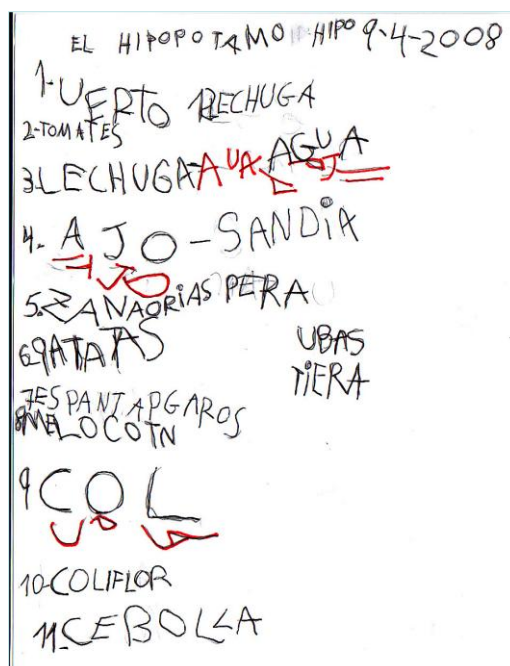 EL HIPOPOTAMO HIPO 9-4-2008
1-UERTO 12LECHUGA
2-TOMATES
3-LECHUGA-AUA AGUA
4. AJO-SANDIA
5.ZANAORIAS PERA
6.PATATAS UBAS
TIERA
7ESPANTAPGAROS
8MELOCOTN
9 COL
10-COLIFLOR
11.CEBOLLA